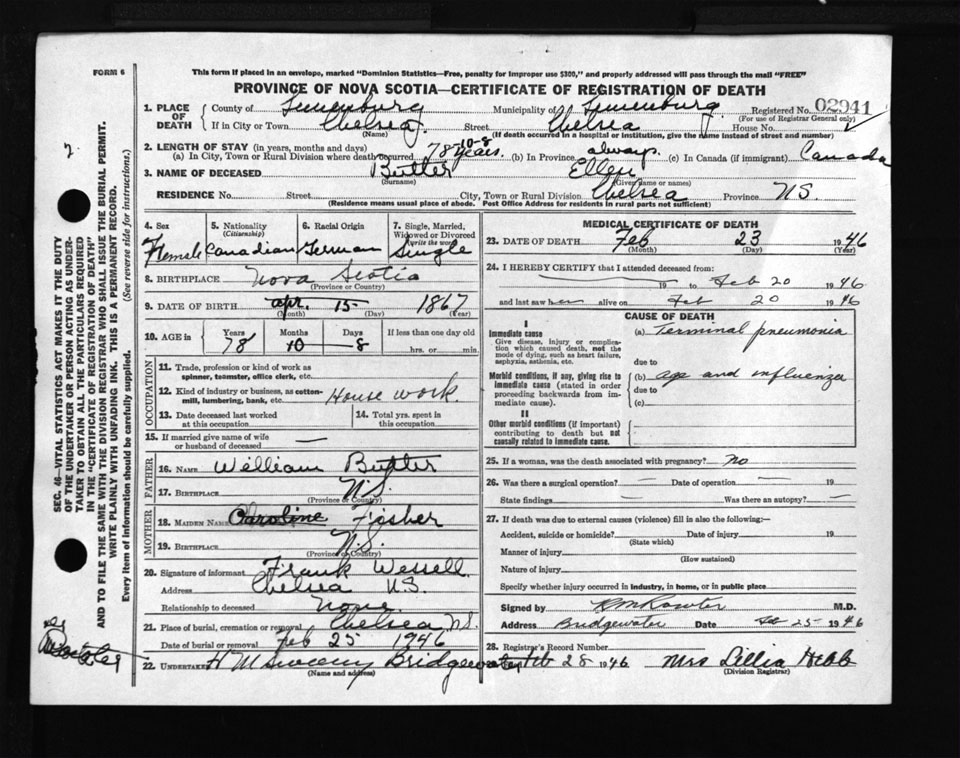 FORM 6
This form if placed in an envelope, marked "Dominion Statistics—Free, penalty for improper use $300," and properly addressed will pass through the mail "FREE"
PROVINCE OF NOVA SCOTIA—CERTIFICATE OF REGISTRATION OF DEATH
1. PLACE OF DEATH { County of Lunenburg Municipality of Lunenburg Registered No. 02941
(For use of Registrar General only)
If in City or Town Chelsea Street Chelsea House No.
(Name) (If death occurred in a hospital or institution, give the name instead of street and number)
2. LENGTH OF STAY (in years, months and days)
(a) In City, Town or Rural Division where death occurred 78 years. 10-8 (b) In Province always. (c) In Canada (if immigrant) Canada
3. NAME OF DECEASED Butler Ellen
(Surname) (Given name or names)
RESIDENCE No. Street City, Town or Rural Division Chelsea Province N.S.
(Residence means usual place of abode. Post Office Address for residents in rural parts not sufficient)
4. Sex Female
5. Nationality (Citizenship) Canadian
6. Racial Origin German
7. Single, Married, Widowed or Divorced (write the word) Single
8. BIRTHPLACE Nova Scotia
(Province or Country)
9. DATE OF BIRTH Apr. 15 1867
(Month) (Day) (Year)
10. AGE in { Years 78 Months 10 Days 8 If less than one day old
hrs. or min.
OCCUPATION
11. Trade, profession or kind of work as spinner, teamster, office clerk, etc.
12. Kind of industry or business, as cotton-mill, lumbering, bank, etc. House work.
13. Date deceased last worked at this occupation
14. Total yrs. spent in this occupation
15. If married give name of wife or husband of deceased —
FATHER
16. NAME William Butler
17. BIRTHPLACE N.S.
(Province or Country)
MOTHER
18. MAIDEN NAME Caroline Fisher
19. BIRTHPLACE N.S.
(Province or Country)
20. Signature of informant Frank Wessell.
Address Chelsea N.S.
Relationship to deceased None.
21. Place of burial, cremation or removal Chelsea N.S.
Date of burial or removal Feb 25 1946
22. UNDERTAKER Bridgewater
(Name and Address)
MEDICAL CERTIFICATE OF DEATH
23. DATE OF DEATH Feb 23 1946
(Month) (Day) (Year)
24. I HEREBY CERTIFY that I attended deceased from:
19 to Feb 20 1946
and last saw her alive on Feb 20 1946
CAUSE OF DEATH
I
Immediate cause (a) Terminal pneumonia
Give disease, injury or complication which caused death, not the mode of dying, such as heart failure, asphyxia, asthenia, etc.
due to
Morbid conditions, if any, giving rise to immediate cause (stated in order proceeding backwards from immediate cause).
(b) age and influenza
due to
(c)
II
Other morbid conditions (if important) contributing to death but not causally related to immediate cause.
25. If a woman, was the death associated with pregnancy? no
26. Was there a surgical operation? — Date of operation — 19
State findings — Was there an autopsy? —
27. If death was due to external causes (violence) fill in also the following:—
Accident, suicide or homicide? Date of injury 19
(State which)
Manner of injury
(How sustained)
Nature of injury
Specify whether injury occurred in industry, in home, or in public place
Signed by M.D.
Address Bridgewater Date Feb 25 1946
28. Registrar's Record Number
Feb 28 1946 Mrs Lillia Hebb
(Division Registrar)
SEC. 46—VITAL STATISTICS ACT MAKES IT THE DUTY
OF THE UNDERTAKER OR PERSON ACTING AS UNDER-
TAKER TO OBTAIN ALL THE PARTICULARS REQUIRED
IN THE "CERTIFICATE OF REGISTRATION OF DEATH"
AND TO FILE THE SAME WITH THE DIVISION REGISTRAR WHO SHALL ISSUE THE BURIAL PERMIT.
WRITE PLAINLY WITH UNFADING INK. THIS IS A PERMANENT RECORD.
Every item of information should be carefully supplied. (See reverse side for instructions.)